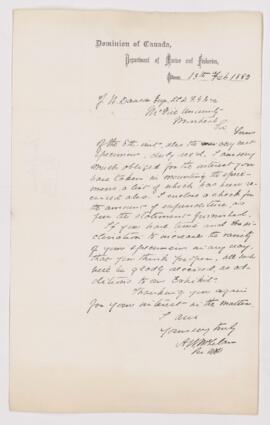 Dominion of Canada,
Department of Marine and Fisheries,
Ottawa, 13th Feb 1883
J W Dawson Esq. LLD F.G.S. &c
McGill University
Montreal
Sir
Yours
of the 8th inst. also the
specimens, duly rec'd. I am very
much obliged for the interest you
have taken in mounting the speci-
mens a list of which has been re-
ceived also. I enclose a check for
the amount of expenditure as
per the statement furnished.
If you had time and the in-
clination to increase the variety
of your specimens in any way
that you think proper, all such
will be gladly received as ad-
ditions to our Exhibit.
Thanking you again
for your interest in the matter
I am
Yours very truly